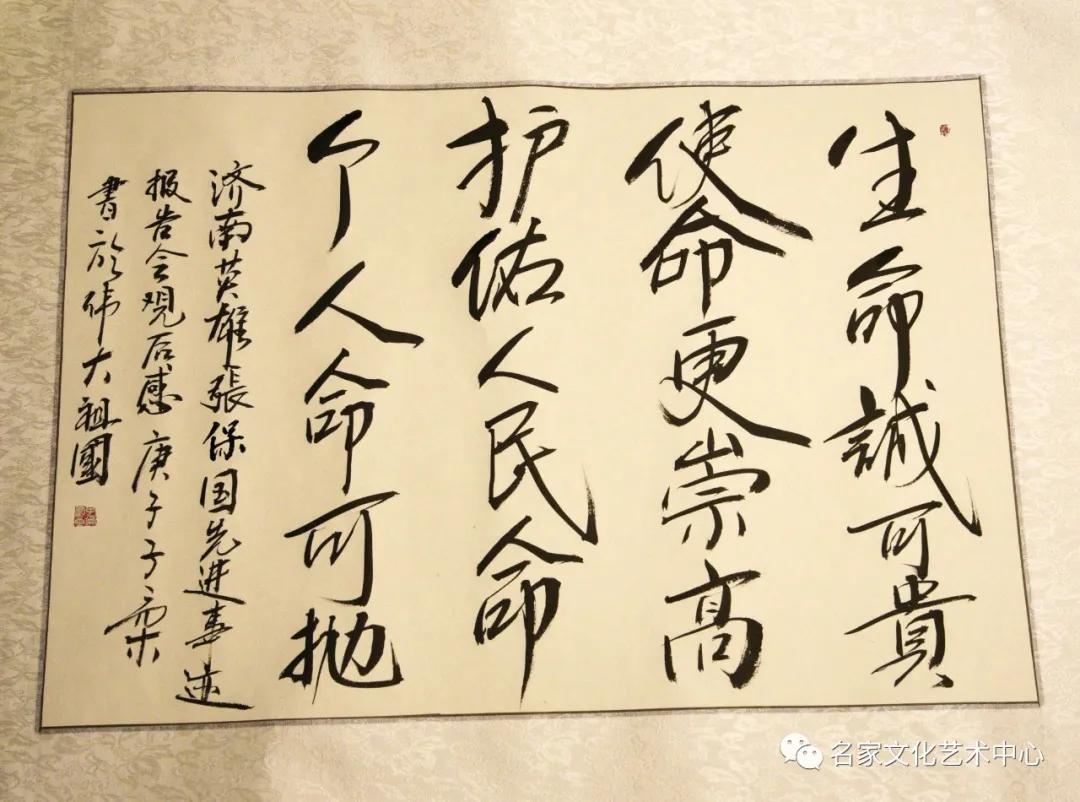 生命誠可貴
使命更崇高
护佑人民命
个人命可抛
济南英雄張保国先进事迹
报告会观后感 庚子
書於伟大祖國
名家文化艺术中心